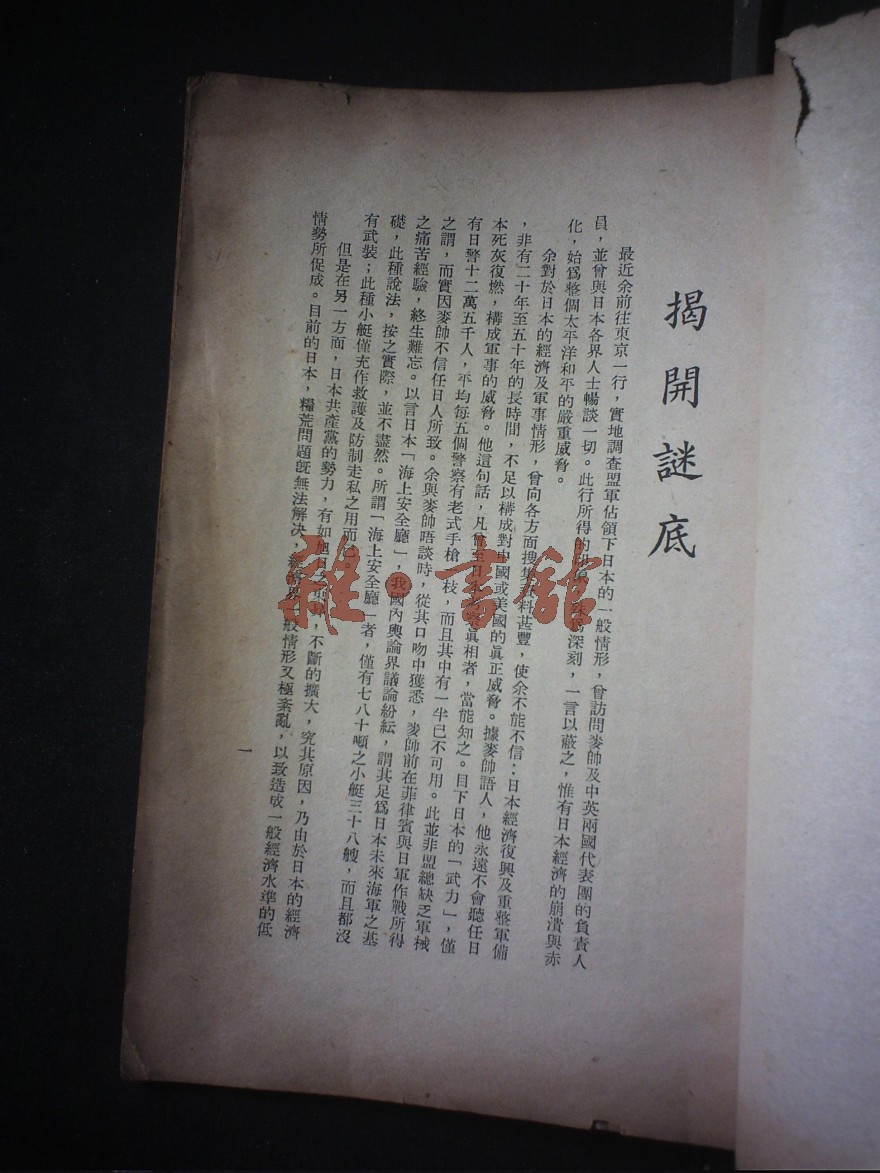 揭開謎底
最近余前往東京一行，實地調查盟軍佔領下日本的一般情形，曾訪問麥帥及中英兩國代表團的負責人
員，並曾與日本各界人士暢談一切。此行所得的印象，殊為深刻，一言以蔽之，惟有日本經濟的崩潰與赤
化，始為整個太平洋和平的嚴重威脅。
余對於日本的經濟及軍事情形，曾向各方面搜集資料甚豐，使余不能不信：日本經濟復興及重整軍備
，非有二十年至五十年的長時間，不足以構成對中國或美國的眞正威脅。據麥帥語人，他永遠不會聽任日
本死灰復燃，構成軍事的威脅。他這句話，凡曾至日本 眞相者，當能知之。目下日本的「武力」，僅
有日警十二萬五千人，平均每五個警察有老式手槍一枝，而且其中有一半已不可用。此並非盟總缺乏軍械
之謂，而實因麥帥不信任日人所致。余與麥帥晤談時，從其口吻中獲悉，麥帥前在菲律賓與日軍作戰所得
之痛苦經驗，終生難忘。以言日本「海上安全廳」，我國內輿論界議論紛紜，謂其足為日本未來海軍之基
礎，此種說法，按之實際，並不盡然。所謂「海上安全廳」者，僅有七八十噸之小艇三十八艘，而且都沒
有武裝；此種小艇僅充作救護及防制走私之用而已。
但是在另一方面，日本共產黨的勢力，有如旭日 ，不斷的擴大，究其原因，乃由於日本的經濟
情勢所促成。目前的日本，糧荒問題旣無法解決，經濟界一般情形又極紊亂，以致造成一般經濟水準的低
一
雜·書舘